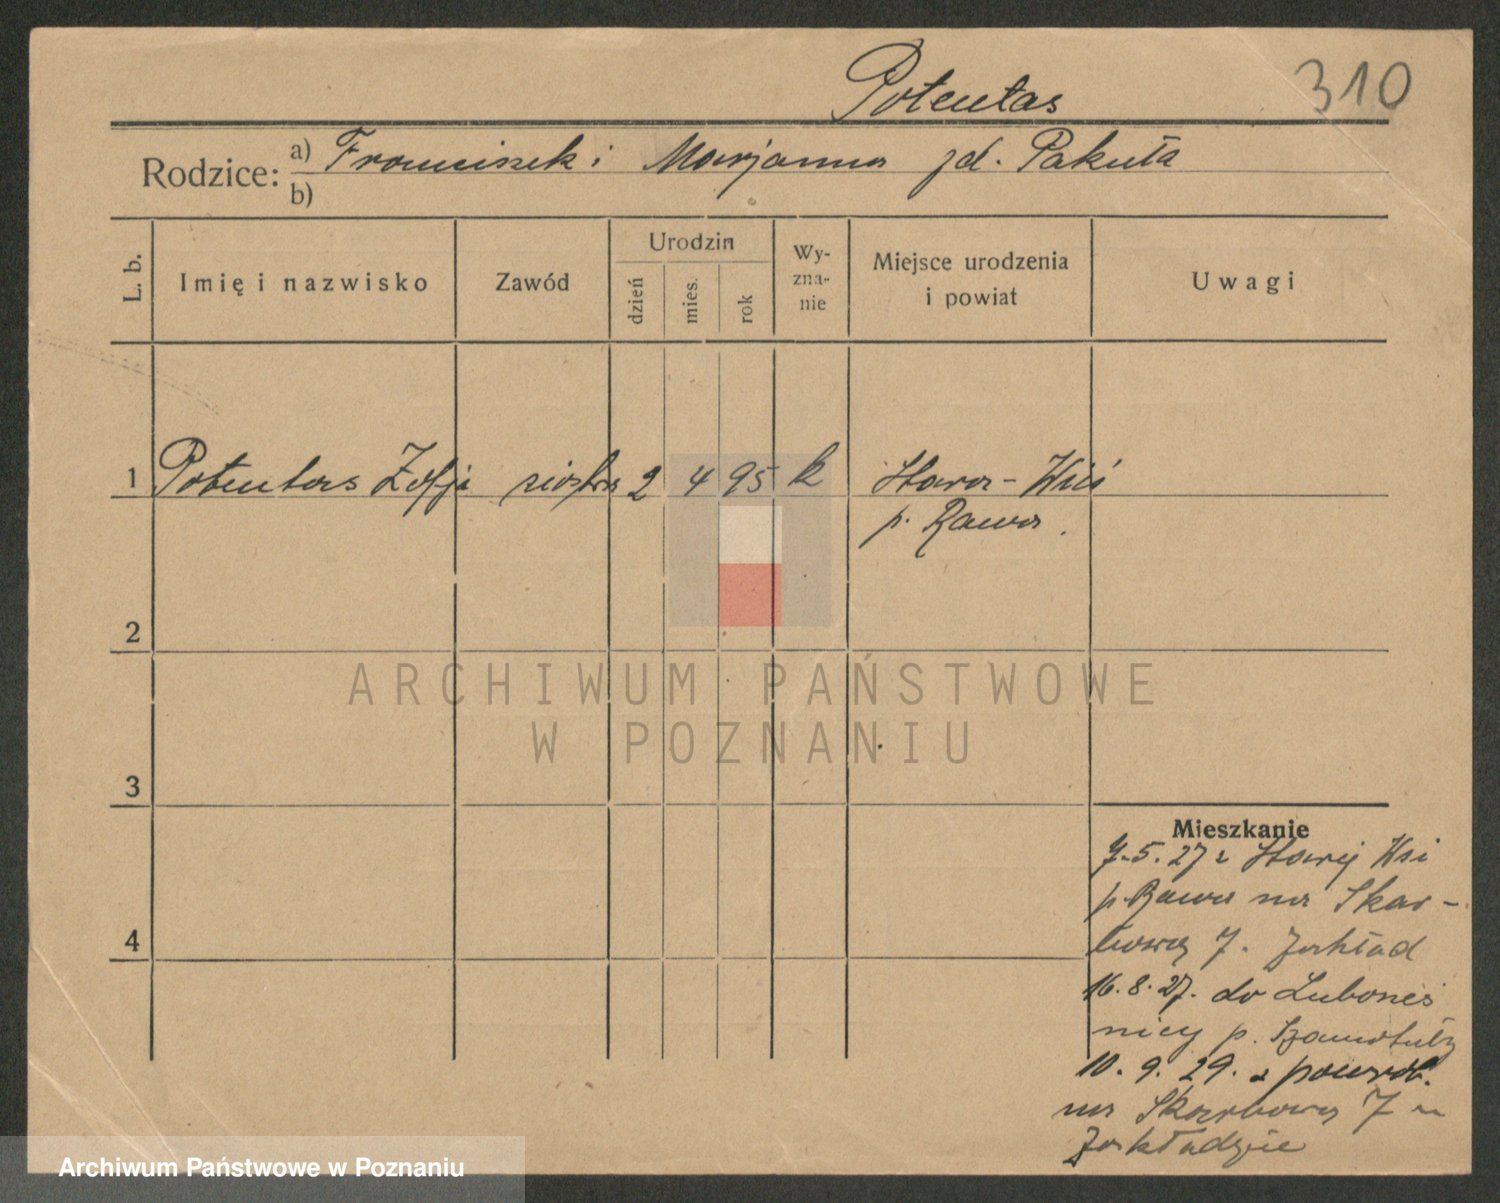 Potentas
310
Rodzice: a) Franciszek i Marjanna zd. Pakuła
b)
L. b.
Imię i nazwisko
Zawód
Urodzin
dzień
mies.
rok
Wy-
zna-
nie
Miejsce urodzenia
i powiat
Uwagi
1 Potentas Zofja siostra 2 4 95 k Stara-Wieś
p. Rawa.
2
ARCHIWUM PAŃSTWOWE
W POZNANIU
3
Mieszkanie
7.5.27 z Starej Wsi
p. Rawa na Skar-
bową 7. Zakład
4
16.8.27. do Luboneś
nicy p. Szamotuły
10.9.29. z powrot.
na Skarbową 7 w
Zakładzie
Archiwum Państwowe w Poznaniu